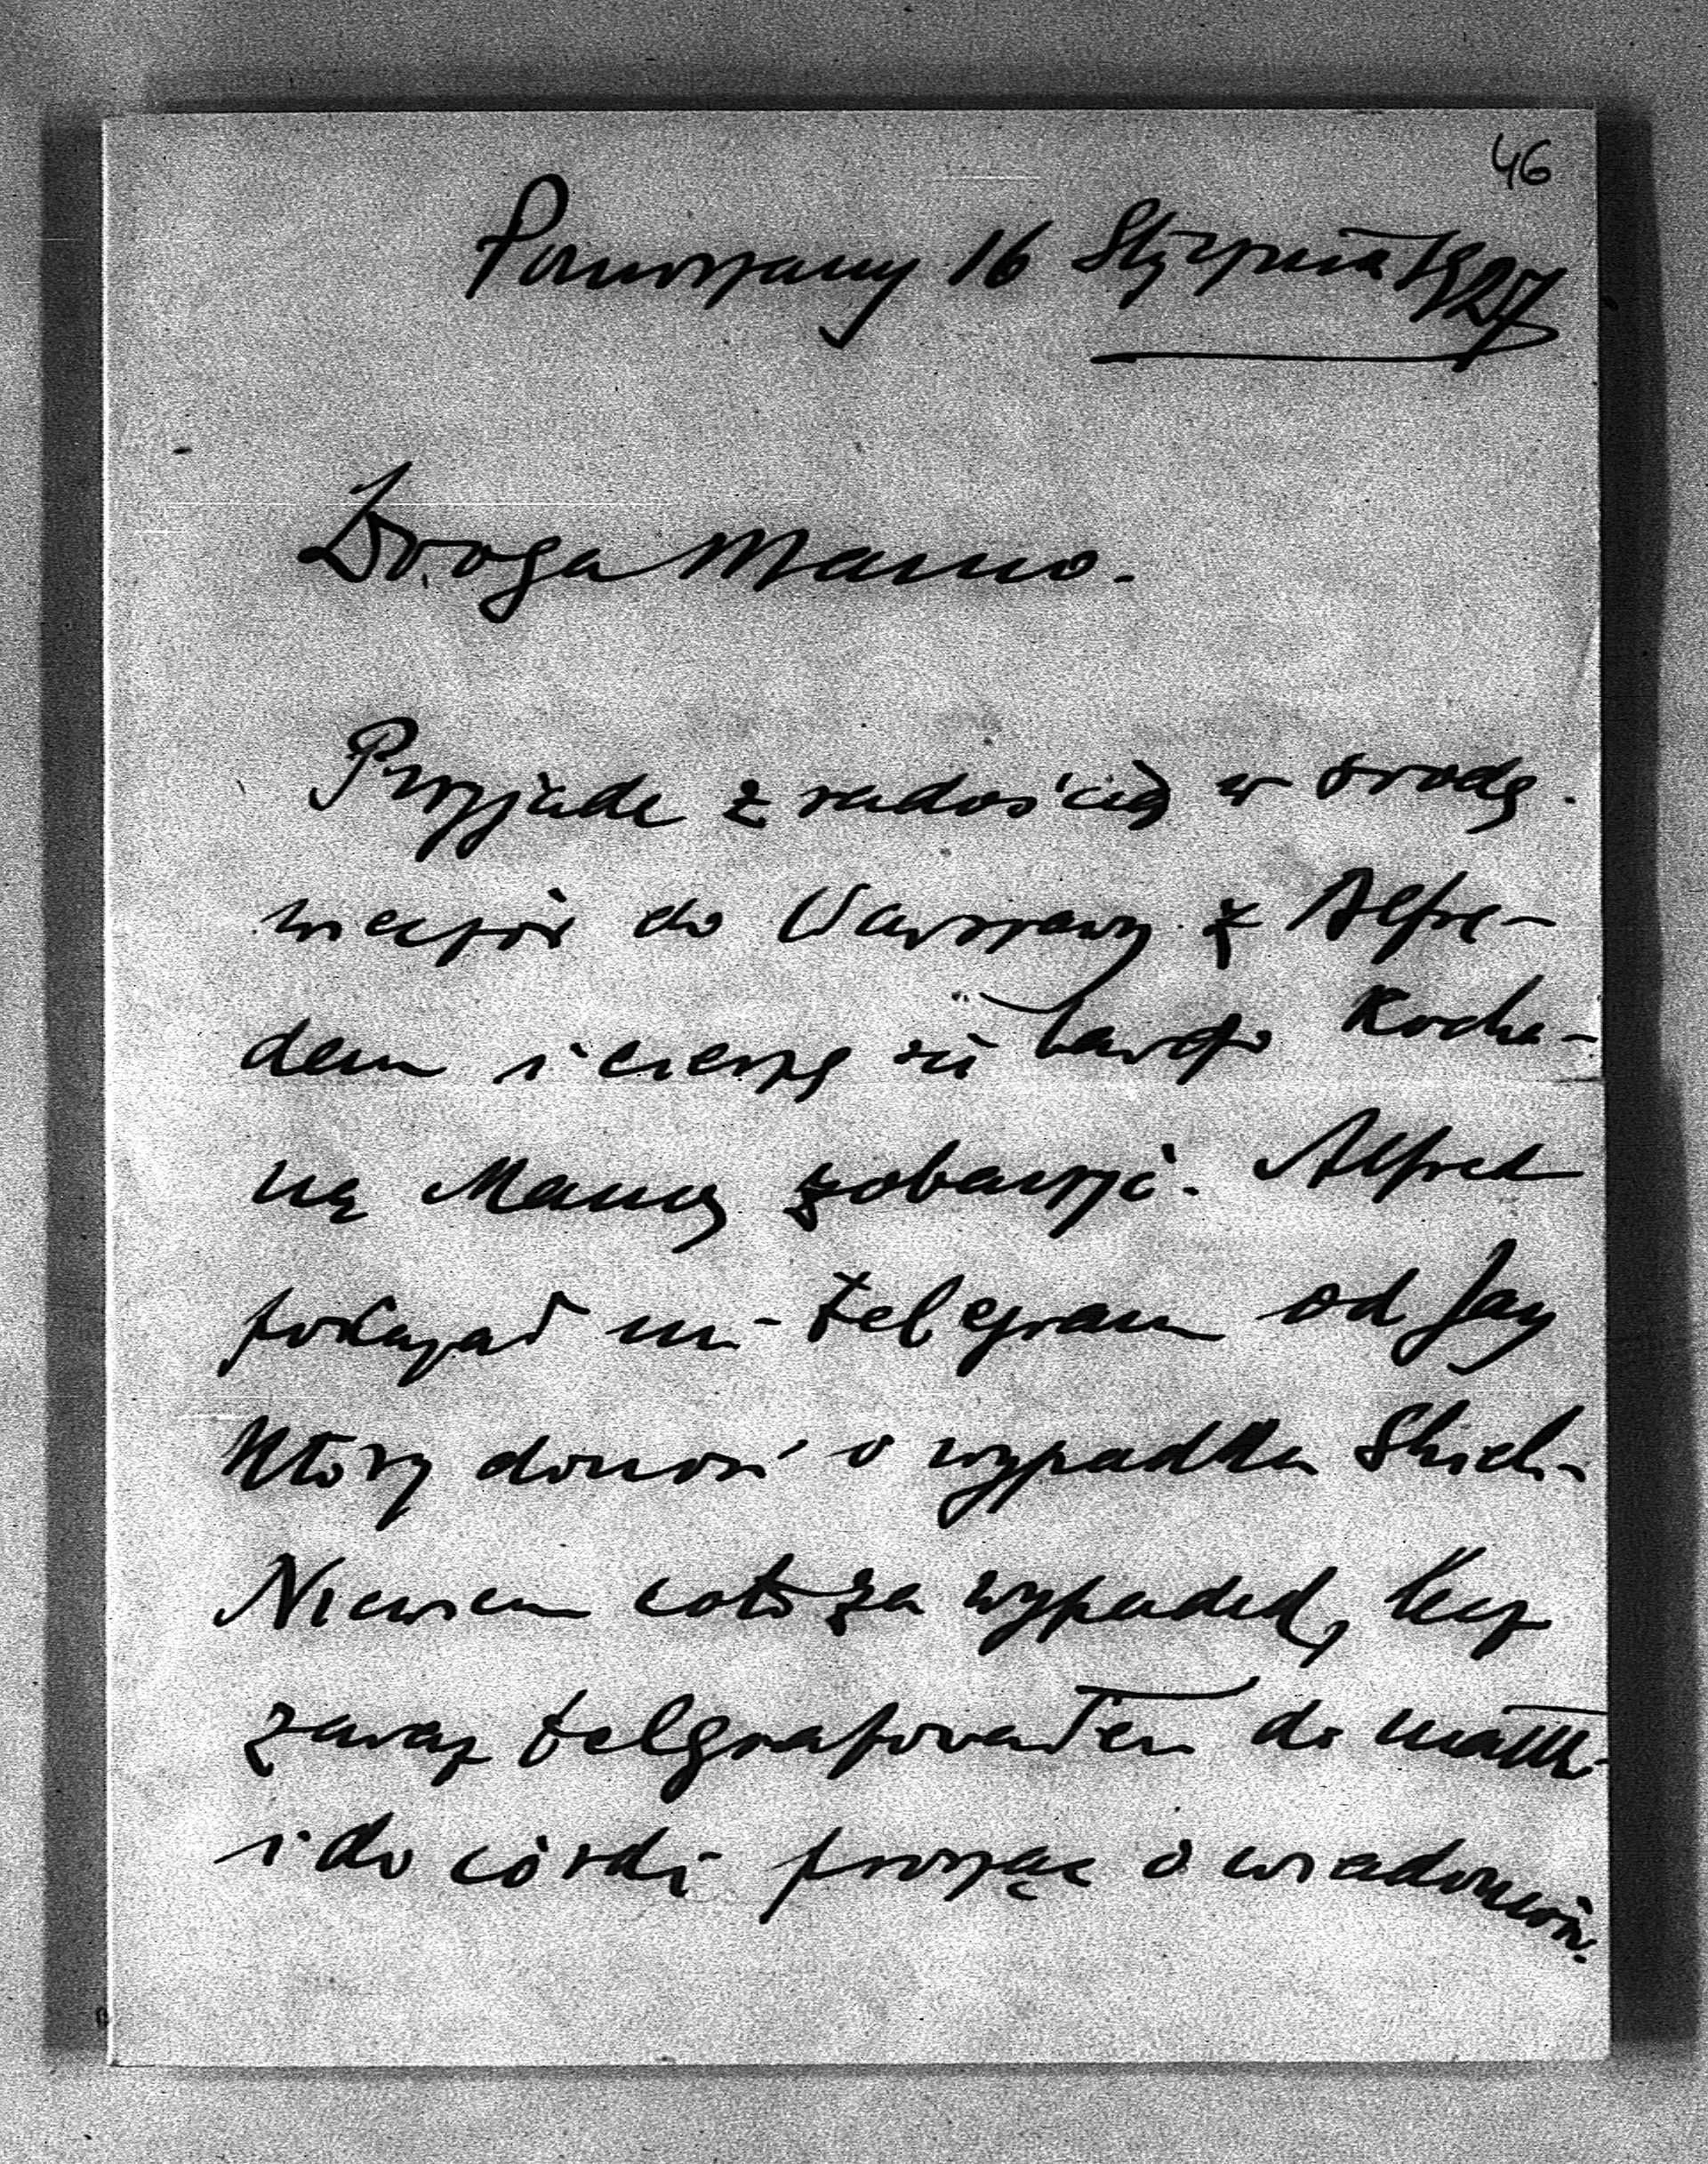 46
Pomorzany 16 Stycznia 1927
Droga Mamo.
Przyjadę z radością w środę.
wieczór do Warszawy z Alfre-
dem i cieszę się bardzo Kocha-
ną Mamę zobaczyć. Alfred
pokazał mi telegram od Jay
który donosi o wypadku
Niewiem coto za wypadek, lecz
zaraz telgrafowałem do matki
i do córki prosząc o wiadomość.